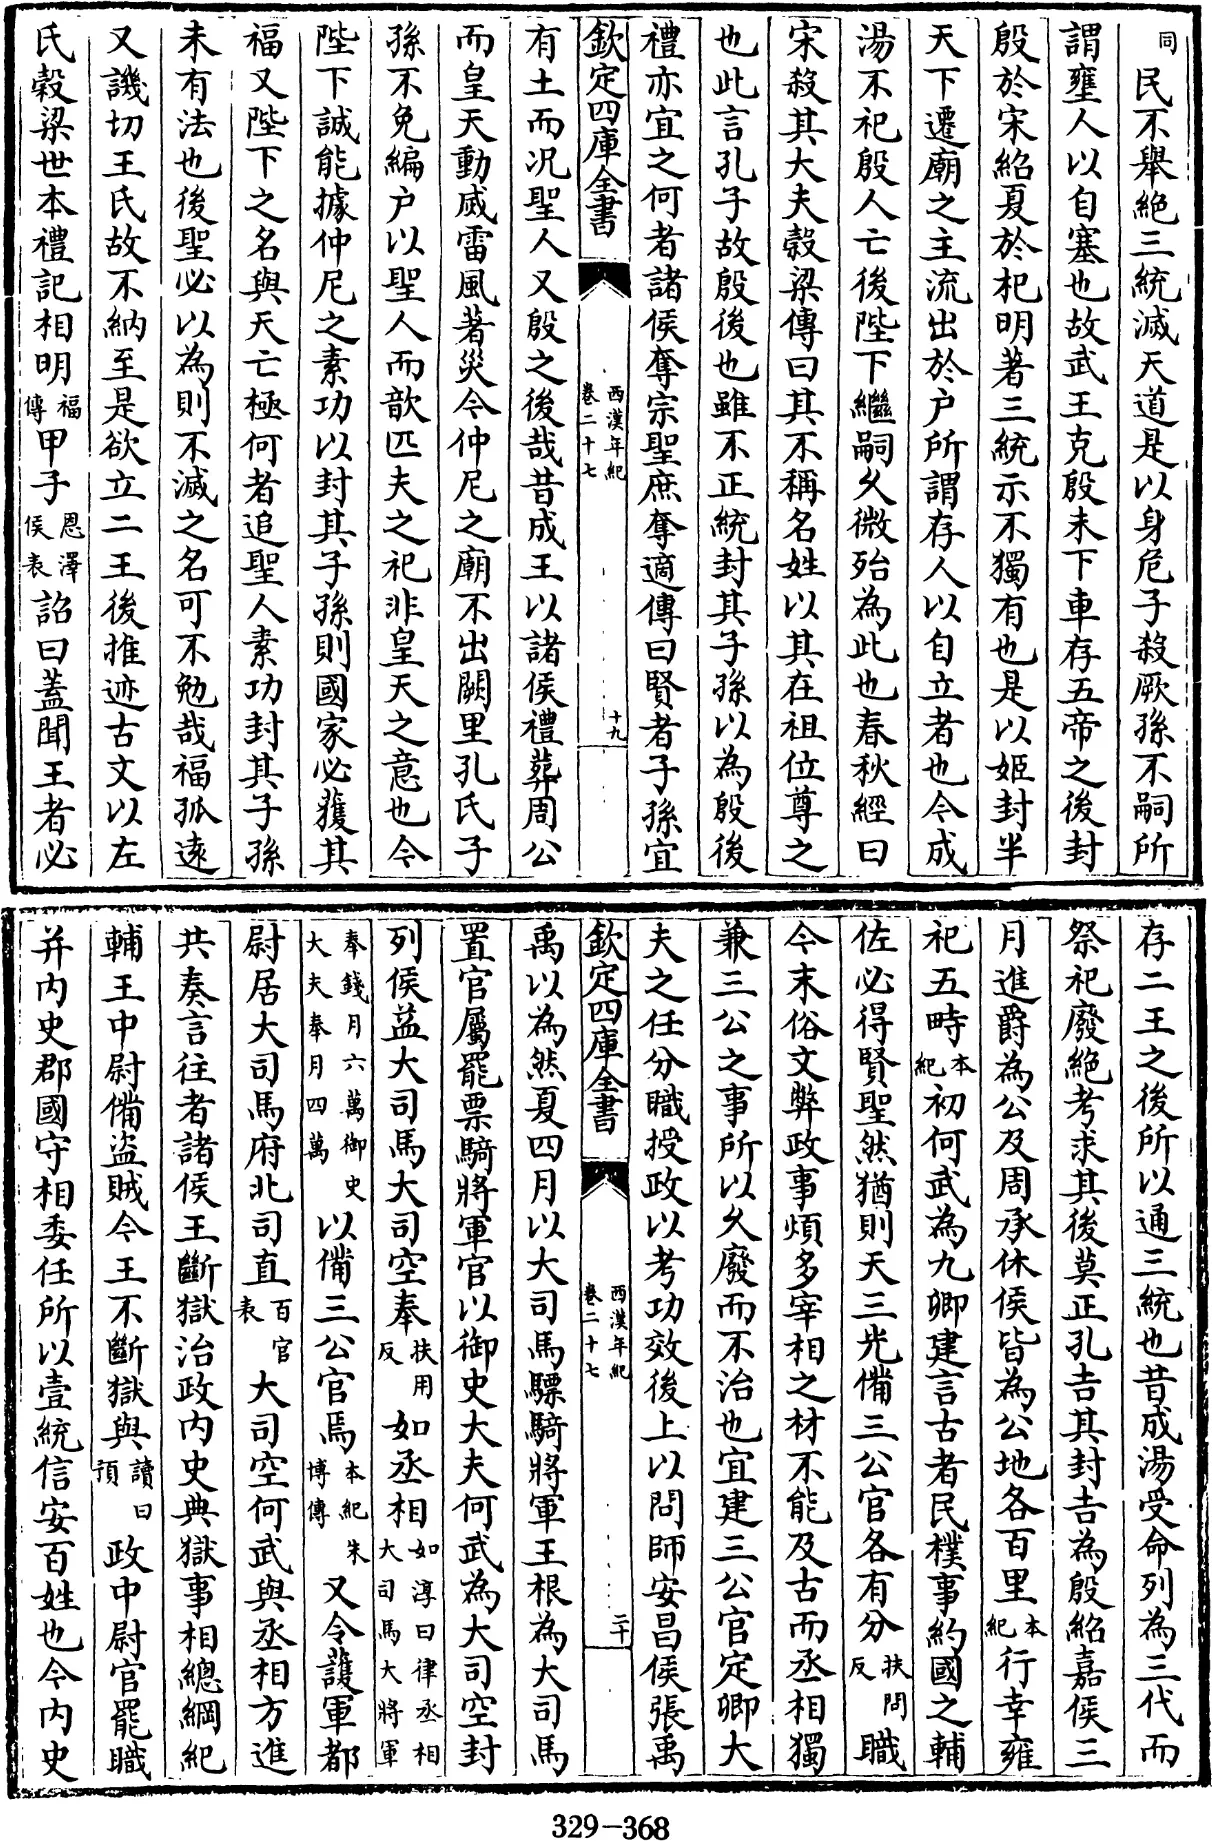 同民不舉絶三統滅天道是以身危子殺厥孫不嗣所
謂壅人以自塞也故武王克殷未下車存五帝之後封
殷於宋紹夏於杞明著三統示不獨有也是以姬封半
天下遷廟之主流出於户所謂存人以自立者也今成
湯不祀殷人亡後陛下繼嗣乆微殆為此也春秋經曰
宋殺其大夫榖梁傳曰其不稱名姓以其在祖位尊之
也此言孔子故殷後也雖不正統封其子孫以為殷後
禮亦宜之何者諸侯奪宗聖庶奪適傳曰賢者子孫宜
欽定四庫全書
西漢年紀
卷二十七
十九
有土而况聖人又殷之後哉昔成王以諸侯禮葬周公
而皇天動威雷風著災今仲尼之廟不出闕里孔氏子
孫不免編户以聖人而歆匹夫之祀非皇天之意也今
陛下誠能據仲尼之素功以封其子孫則國家必獲其
福又陛下之名與天亡極何者追聖人素功封其子孫
未有法也後聖必以為則不滅之名可不勉哉福孤逺
又譏切王氏故不納至是欲立二王後推迹古文以左
氏榖梁世本禮記相明福傳甲子恩澤侯表詔曰蓋聞王者必
存二王之後所以通三統也昔成湯受命列為三代而
祭祀廢絶考求其後莫正孔吉其封吉為殷紹嘉侯三
月進爵為公及周承休侯皆為公地各百里本紀行幸雍
祀五畤本紀初何武為九卿建言古者民樸事約國之輔
佐必得賢聖然猶則天三光備三公官各有分扶問反職
今末俗文弊政事煩多宰相之材不能及古而丞相獨
兼三公之事所以乆廢而不治也宜建三公官定卿大
夫之任分職授政以考功效後上以問師安昌侯張禹
欽定四庫全書
西漢年紀
卷二十七
二十
禹以為然夏四月以大司馬驃騎將軍王根為大司馬
置官屬罷票騎將軍官以御史大夫何武為大司空封
列侯益大司馬大司空奉扶用反如丞相如淳曰律丞相大司馬大將軍
奉錢月六萬御史大夫奉月四萬以備三公官焉本紀朱博傳又令護軍都
尉居大司馬府北司直百官表大司空何武與丞相方進
共奏言往者諸侯王斷獄治政内史典獄事相總綱紀
輔王中尉備盗賊今王不斷獄與讀曰預政中尉官罷職
并内史郡國守相委任所以壹統信安百姓也今内史
329-368